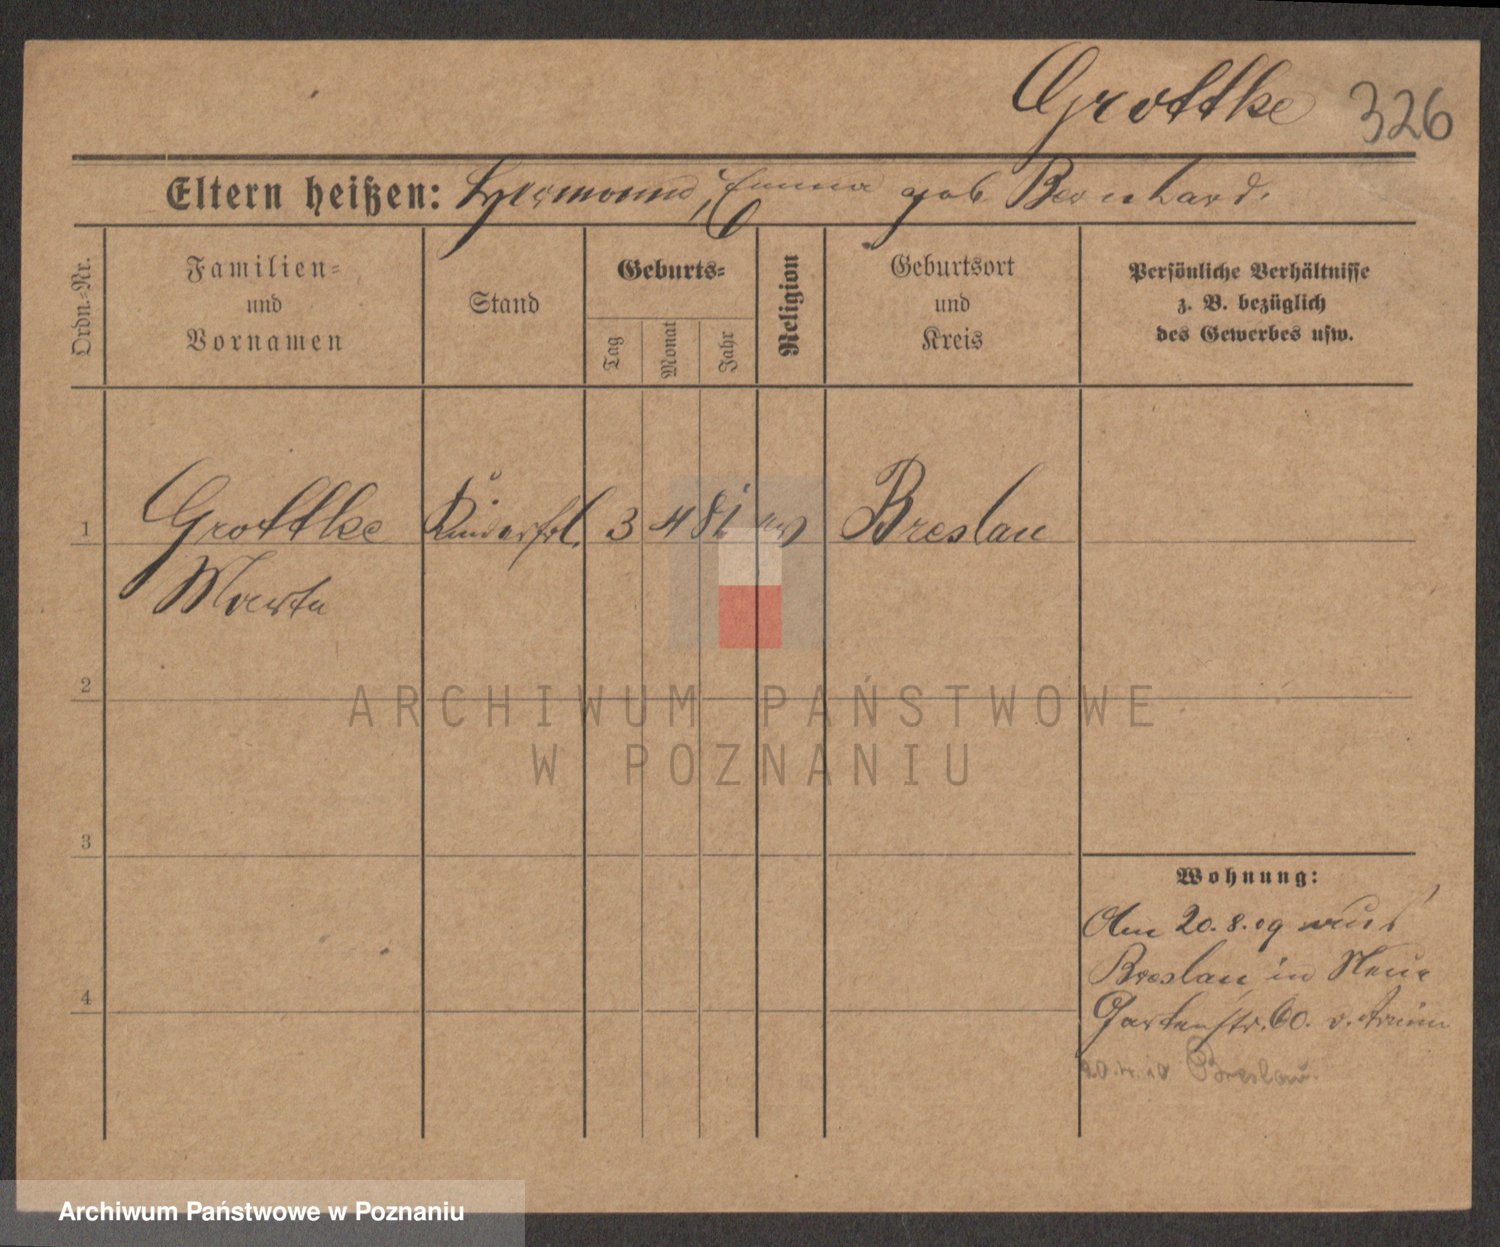 Grottke 326
Eltern heißen: Hermann, Emma geb. Bernhard.
Ordn.-Nr.
Familien- und Vornamen
Stand
Geburts-
Tag
Monat
Jahr
Religion
Geburtsort und Kreis
Persönliche Verhältnisse
z. B. bezüglich
des Gewerbes usw.
1 Grottke Kinderfrl. 3 4 81 ev Breslau
Marta
2
ARCHIWUM PAŃSTWOWE
W POZNANIU
3
Wohnung:
Am 20.8.09 aus
Breslau in Neue
4
Gartenstr. 60. v. Arnim
Breslau.
Archiwum Państwowe w Poznaniu